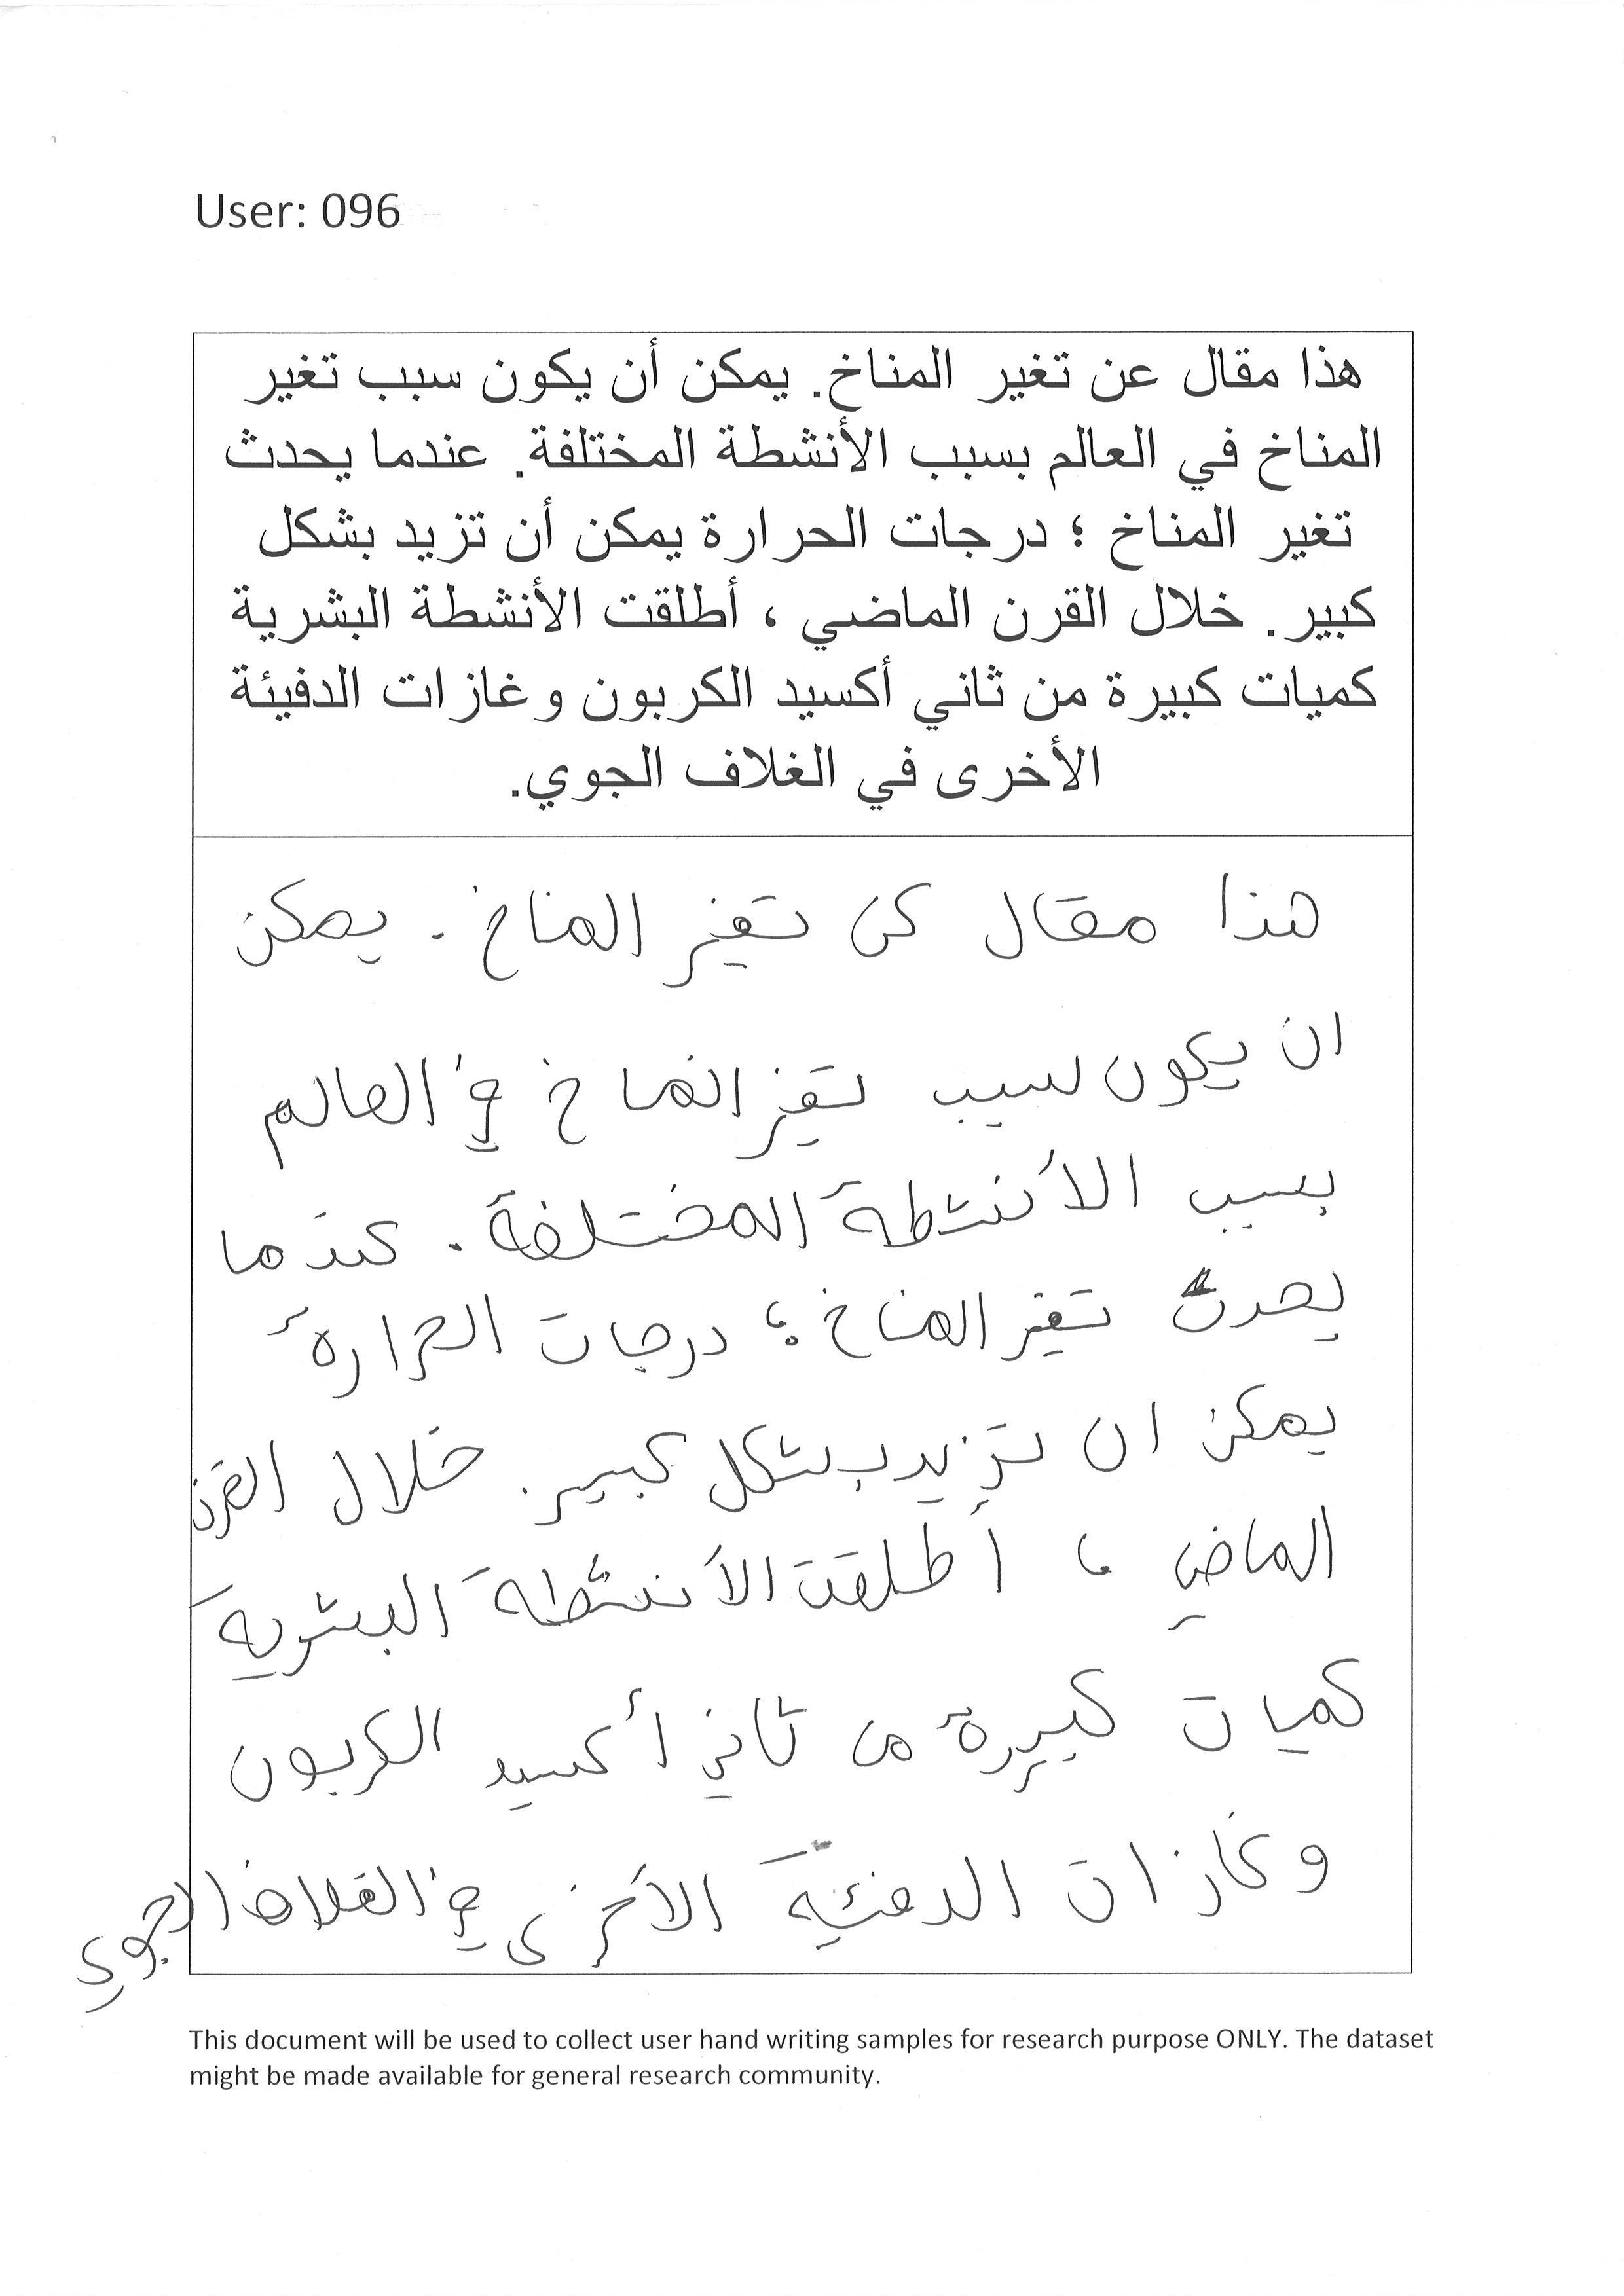 User: 096
هذا مقال عن تغير المناخ. يمكن أن يكون سبب تغير
المناخ في العالم بسبب الأنشطة المختلفة. عندما يحدث
تغير المناخ ؛ درجات الحرارة يمكن أن تزيد بشكل
كبير. خلال القرن الماضي ، أطلقت الأنشطة البشرية
كميات كبيرة من ثاني أكسيد الكربون وغازات الدفيئة
الأخرى في الغلاف الجوي.
هذا مقال عن تغير المناخ . يمكن
ان يكون سبب تغير المناخ في العالم
بسبب الأنشطة المختلفة . عندما
يحدث تغير المناخ ؛ درجات الحرارة
يمكن ان تزيد بشكل كبير . خلال القرن
الماضي ، أطلقت الأنشطة البشرية
كميات كبيرة من ثاني أكسيد الكربون
وغازات الدفيئة الأخرى في الغلاف الجوي
This document will be used to collect user hand writing samples for research purpose ONLY. The dataset
might be made available for general research community.